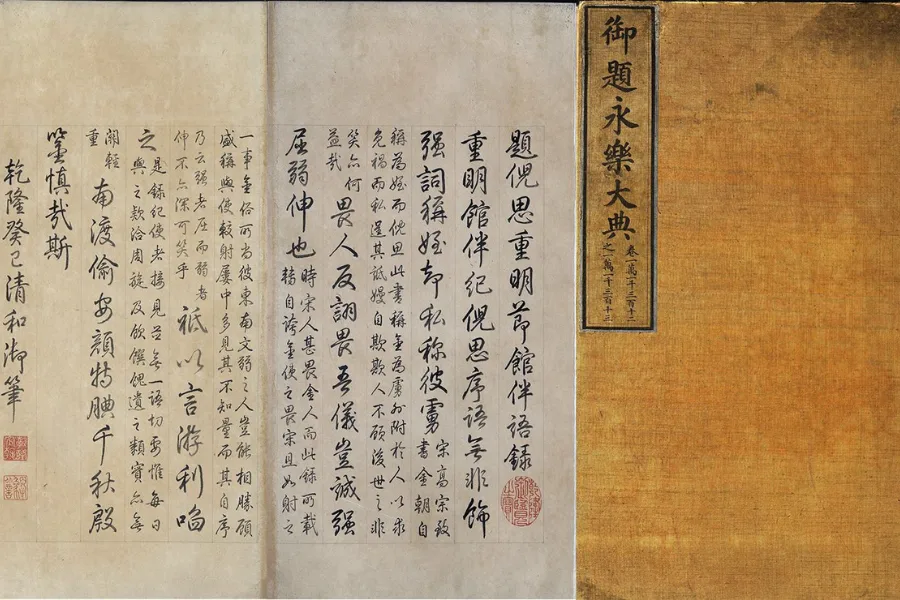 御題永樂大典
卷一萬一千三百十二
之一萬一千三百十三
題倪思重明節館伴語錄
重明館伴紀倪思序語無非飾
强詞稱姪却私称彼虜
宋高宗致
書金朝自
稱為姪而倪思此書稱金為虜外附於人以求
免禍而私逞其詆嫚自欺欺人不顧後世之非
笑亦何
益哉
畏人反詡畏吾儀豈誠强
屈弱伸也
時宋人甚畏金人而此錄所載
轉自誇金使之畏宋且如射之
一事金俗所尚彼東南文弱之人豈能相勝顧
盛稱與使較射屢中多見其不知量而其自序
乃云强者屈而弱者
伸不亦深可笑乎
祗以言游利啗
之
是錄紀使者接見無一語切要惟每日
與之欵洽周旋及飲饌餽遺之類實亦無
關輕
重
南渡偷安顏特腆千秋殿
鑒慎哉斯
乾隆癸巳清和御筆